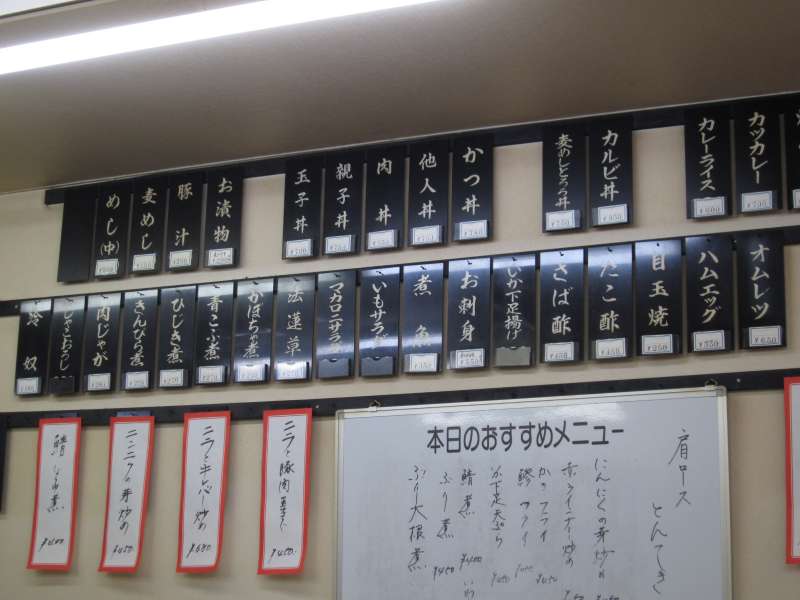 カツカレー
カレーライス
カルビ丼
麦めしとろろ丼
かつ丼
他人丼
肉丼
親子丼
玉子丼
お漬物
豚汁
麦めし
めし(中)
オムレツ
¥650
ハムエッグ
¥350
目玉焼
¥250
たこ酢
¥450
さば酢
¥450
いか下足揚げ
お刺身
煮魚
いもサラダ
マカロニサラダ
法蓮草
かぼちゃ煮
青こぶ煮
ひじき煮
きんぴら煮
肉じゃが
じゃこおろし
冷奴
ニラと豚肉玉子
¥450
ニラと牛レバー炒め
¥650
ニンニクの芽炒め
¥450
鯖
煮
¥400
本日のおすすめメニュー
肩ロース
とんてき
にんにくの芽炒め
かきフライ
フライ
いか下足天ぷら
鯖煮
¥400
ぶり煮
¥450
ぶり大根煮